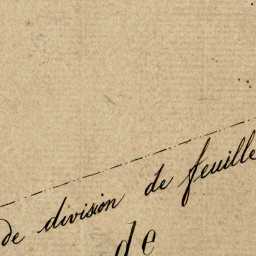 de division de feuille
de